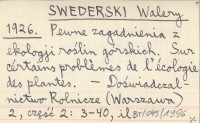 SWEDERSKI Walery
1926. Pewne zagadnienia z
ekologji roślin górskich. Sur
certains problèmes de l'écologie
des plantes. — Doświadczal-
nictwo Rolnicze (Warszawa)
2, część 2: 3-40, il